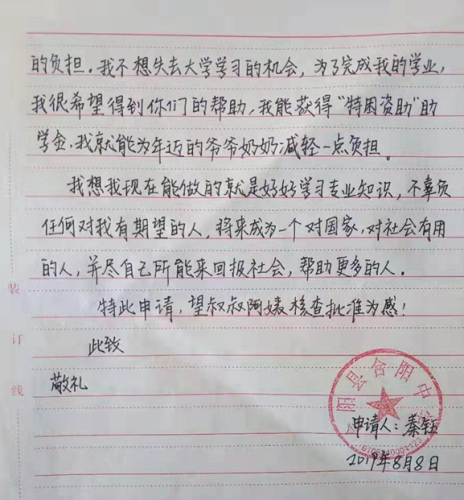 的负担。我不想失去大学学习的机会，为了完成我的学业，
我很希望得到你们的帮助，我能获得“特困资助”助
学金，我就能为年迈的爷爷奶奶减轻一点负担。
我想我现在能做的就是好好学习专业知识，不辜负
任何对我有期望的人，将来成为一个对国家，对社会有用
的人，并尽自己所能来回报社会，帮助更多的人。
特此申请，望叔叔阿姨核查批准为感！
装
此致
订
敬礼
线
阳县合阳中
申请人：秦钰
2019年8月8日